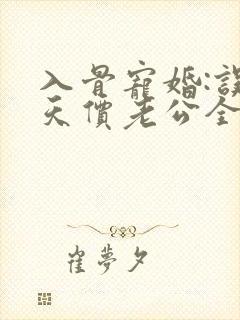 入骨寵婚:誤
天價老公全
崔夢夕